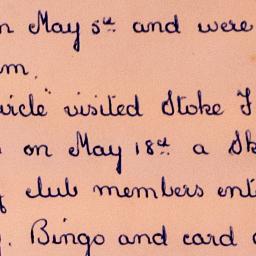 n May 5th and were
m.
ircle" visited Stoke F
on May 18th a Sk
f club members ent
. Bingo and card